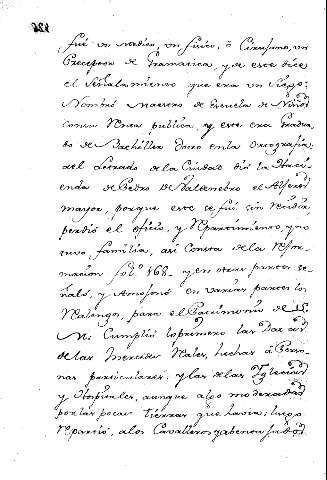 fué un medico, un fisico, ò Cirujano, un
Preceptor de Gramatica, y de este dice
el Señalamiento que era un Clerigo;
Nombró Maestro de Escuela de Niños
con su Renta publica, y este era Gradua-
do de Bachiller docto en la Ortografia;
al Letrado de la Ciudad dió la Haci-
enda de Pedro de Valenebro el Alferez
mayor, porque este se fué sin vender
perdió el oficio, y Repartimiento, y no
tuvo familia, asi Consta de la Refor-
macion fol.º 168 y en otras partes se-
ñaló, y Amojonó en varias partes los
Realengos, para el Patrimonio de S.
M. Cumplió lo primero las Datas
de las Mercedes Reales, hechas à Perso-
nas particulares, y las de las Iglesias
y Ospitales, aunque algo moderadas
por las pocas tierras que havia; luego
Repartió, à los Cavalleros,